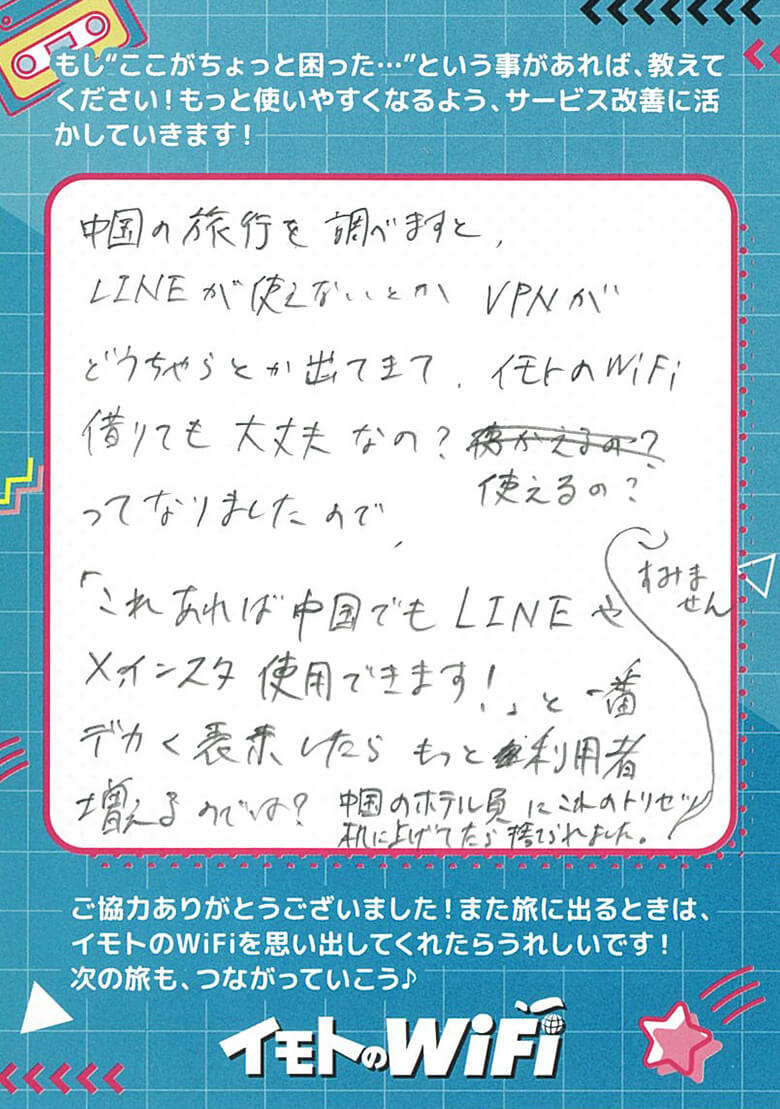 もし“ここがちょっと困った…”という事があれば、教えて
ください！もっと使いやすくなるよう、サービス改善に活
かしていきます！
中国の旅行を調べますと、
LINEが使えないとか VPNが
どうちゃらとか出てきて、イモトのWiFi
借りても大丈夫なの？
使えるの？
ってなりましたので、
「これあれば中国でもLINEや
X、インスタ使用できます！」と一番
デカく表示したらもっと利用者
増えるのでは？
中国のホテル員にこれのトリセツ
机に上げてたら捨てられました。
すみま
せん
ご協力ありがとうございました！また旅に出るときは、
イモトのWiFiを思い出してくれたらうれしいです！
次の旅も、つながっていこう♪
イモトのWiFi